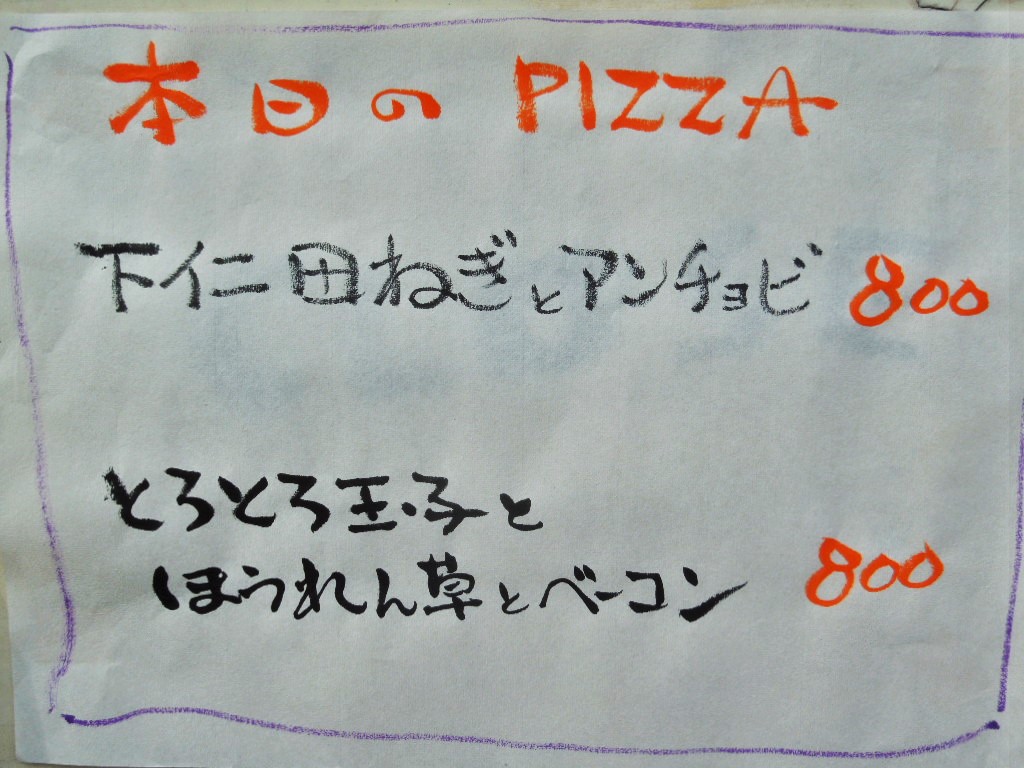 本日のPIZZA
下仁田ねぎとアンチョビ 800
とろとろ玉子と
ほうれん草とベーコン 800